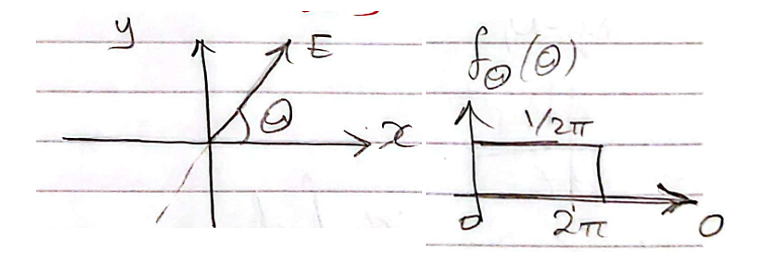 y
E
Θ
x
f_Θ(Θ)
1/2π
0
2π
Θ